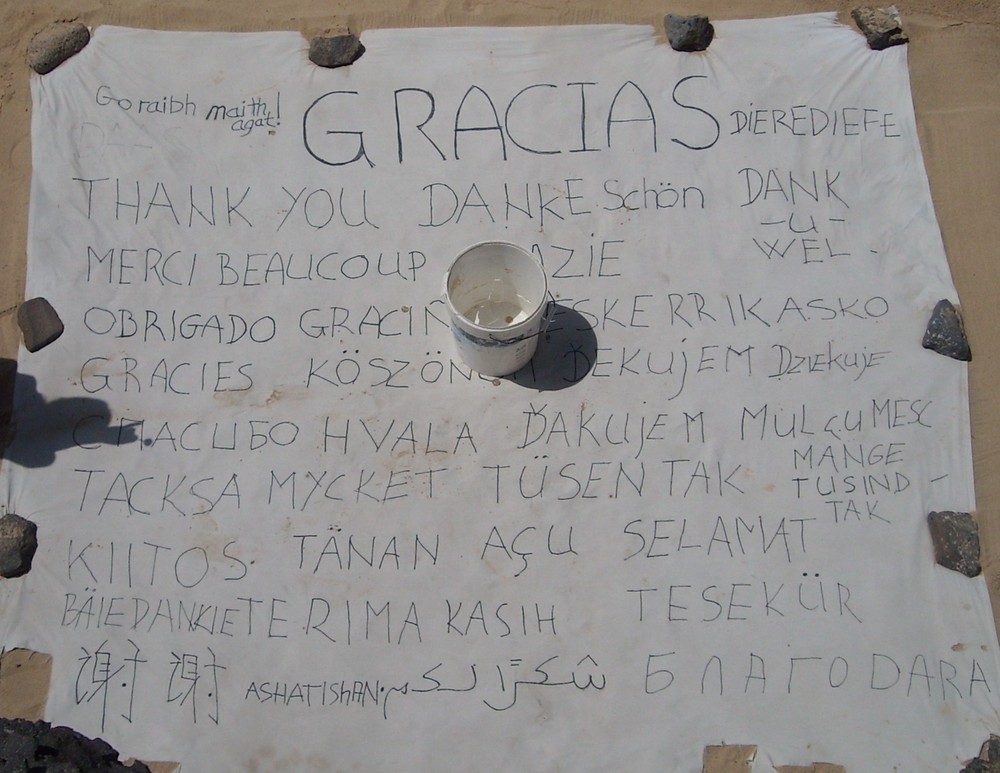 Go raibh maith agat! GRACIAS DIEREDIEFE
THANK YOU DANKE Schön DANK
-U-
WEL -
MERCI BEAUCOUP AZIE
OBRIGADO GRACIÑ ESKERRIKASKO
GRACIES KÖSZÖN ĎEKUJEM DZIEKUJE
СПАСЦБО HVALA ĎAKUJEM MULCUMESC
TACKSA MYCKET TÜSEN TAK MANGE
TUSIND -
TAK
KIITOS. TÄNAN AÇU SELAMAT
BÄIEDANKIE TERIMA KASIH TESEKÜR
謝謝 ASHATISHAN. شكرًا لكم БЛАГОDARA